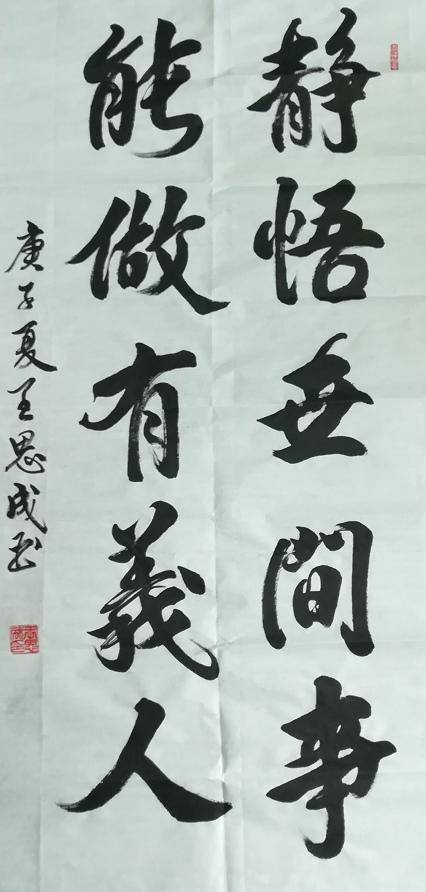 静悟世間事
能做有義人
庚子夏王思成书